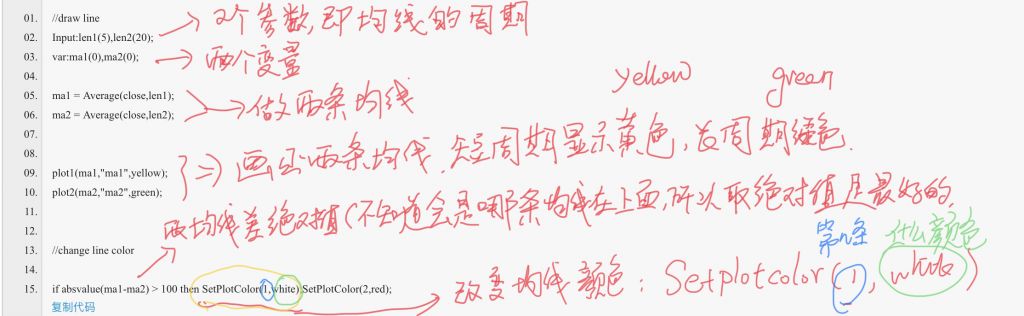 01. //draw line
02. Input:len1(5),len2(20); 2个参数,即均线的周期
03. var:ma1(0),ma2(0); 两个变量
04. yellow green
05. ma1 = Average(close,len1); 做两条均线
06. ma2 = Average(close,len2);
07.
08. 画出两条均线,短周期显示黄色,长周期绿色.
09. plot1(ma1,"ma1",yellow);
10. plot2(ma2,"ma2",green);
11. 两均线差绝对值(不知道会是哪条均线在上面,所以取绝对值是最好的,
12. 第n条 什么颜色
13. //change line color
14. 改变均线颜色: Setplotcolor(1,white)
15. if absvalue(ma1-ma2) > 100 then SetPlotColor(1,white);SetPlotColor(2,red);
复制代码